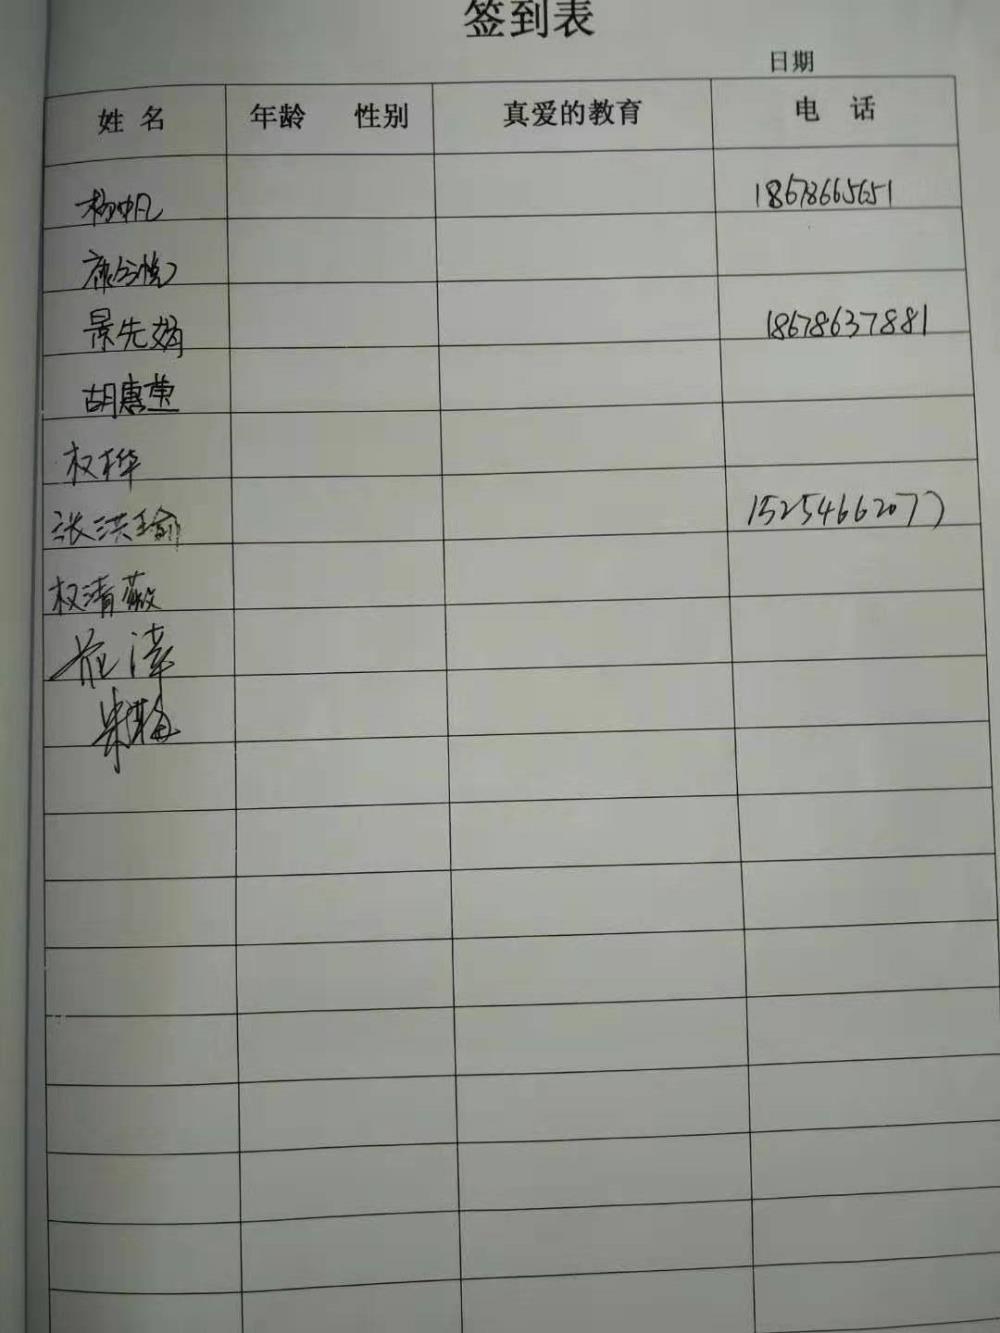 签到表
日期
姓名 年龄 性别 真爱的教育 电话
杨帆 18678665651
景先娟 18678637881
胡惠萸
权桦
张洪瑜 15254662077
权清薇